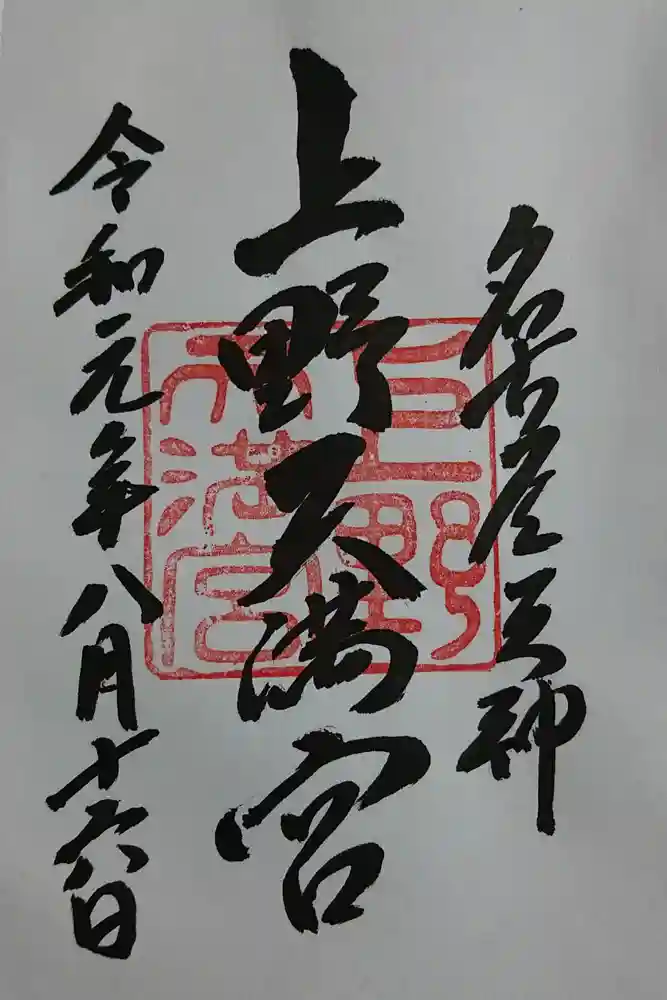 名古屋天神
上野天満宮
上野天満宮
令和元年八月十六日